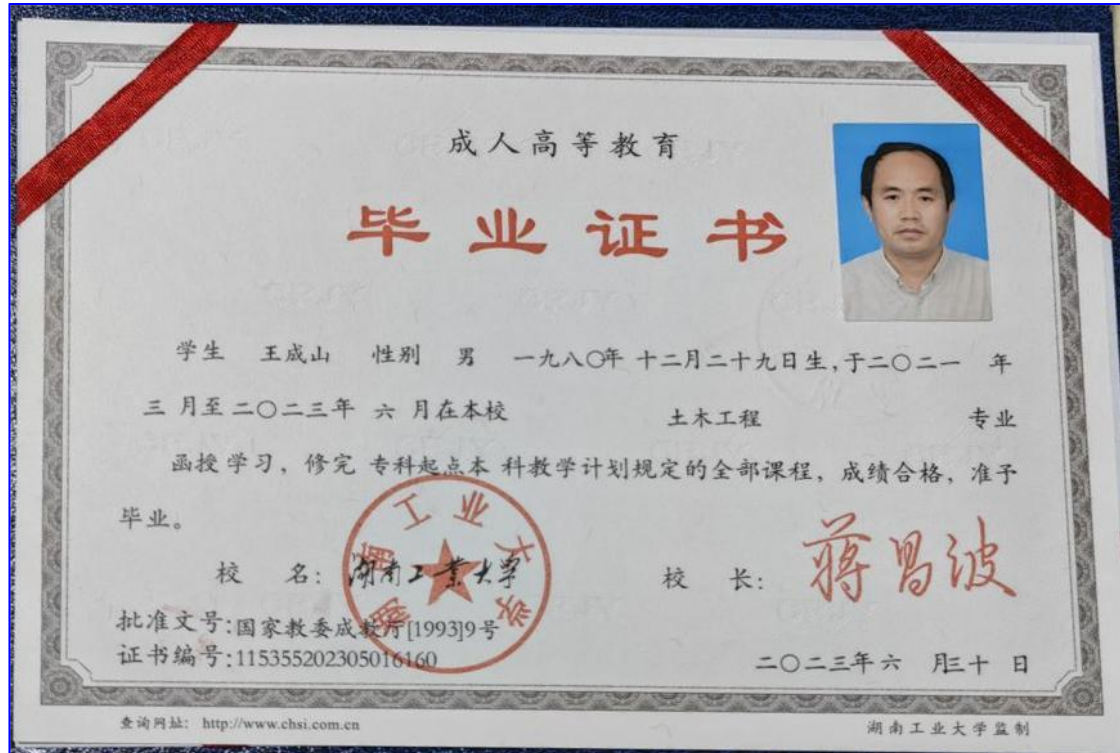 成人高等教育
毕业证书
学生 王成山 性别 男 一九八〇年 十二月二十九日生,于二〇二一 年
三 月至二〇二三年 六 月在本校 土木工程 专业
函授学习,修完 专科起点本 科教学计划规定的全部课程,成绩合格,准予
毕业。
校 名: 湖南工业大学 校 长: 蒋昌波
湖南工业大学
批准文号:国家教委成教厅[1993]9号
证书编号:115355202305016160 二〇二三年 六 月三十 日
查询网址: http://www.chsi.com.cn 湖南工业大学监制